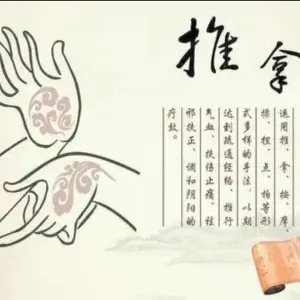 推拿
运用推、拿、按、摩、
揉、捏、点、拍等形
式多样的手法,以期
达到疏通经络、推行
气血、扶伤止痛、祛
邪扶正、调和阴阳的
疗效。